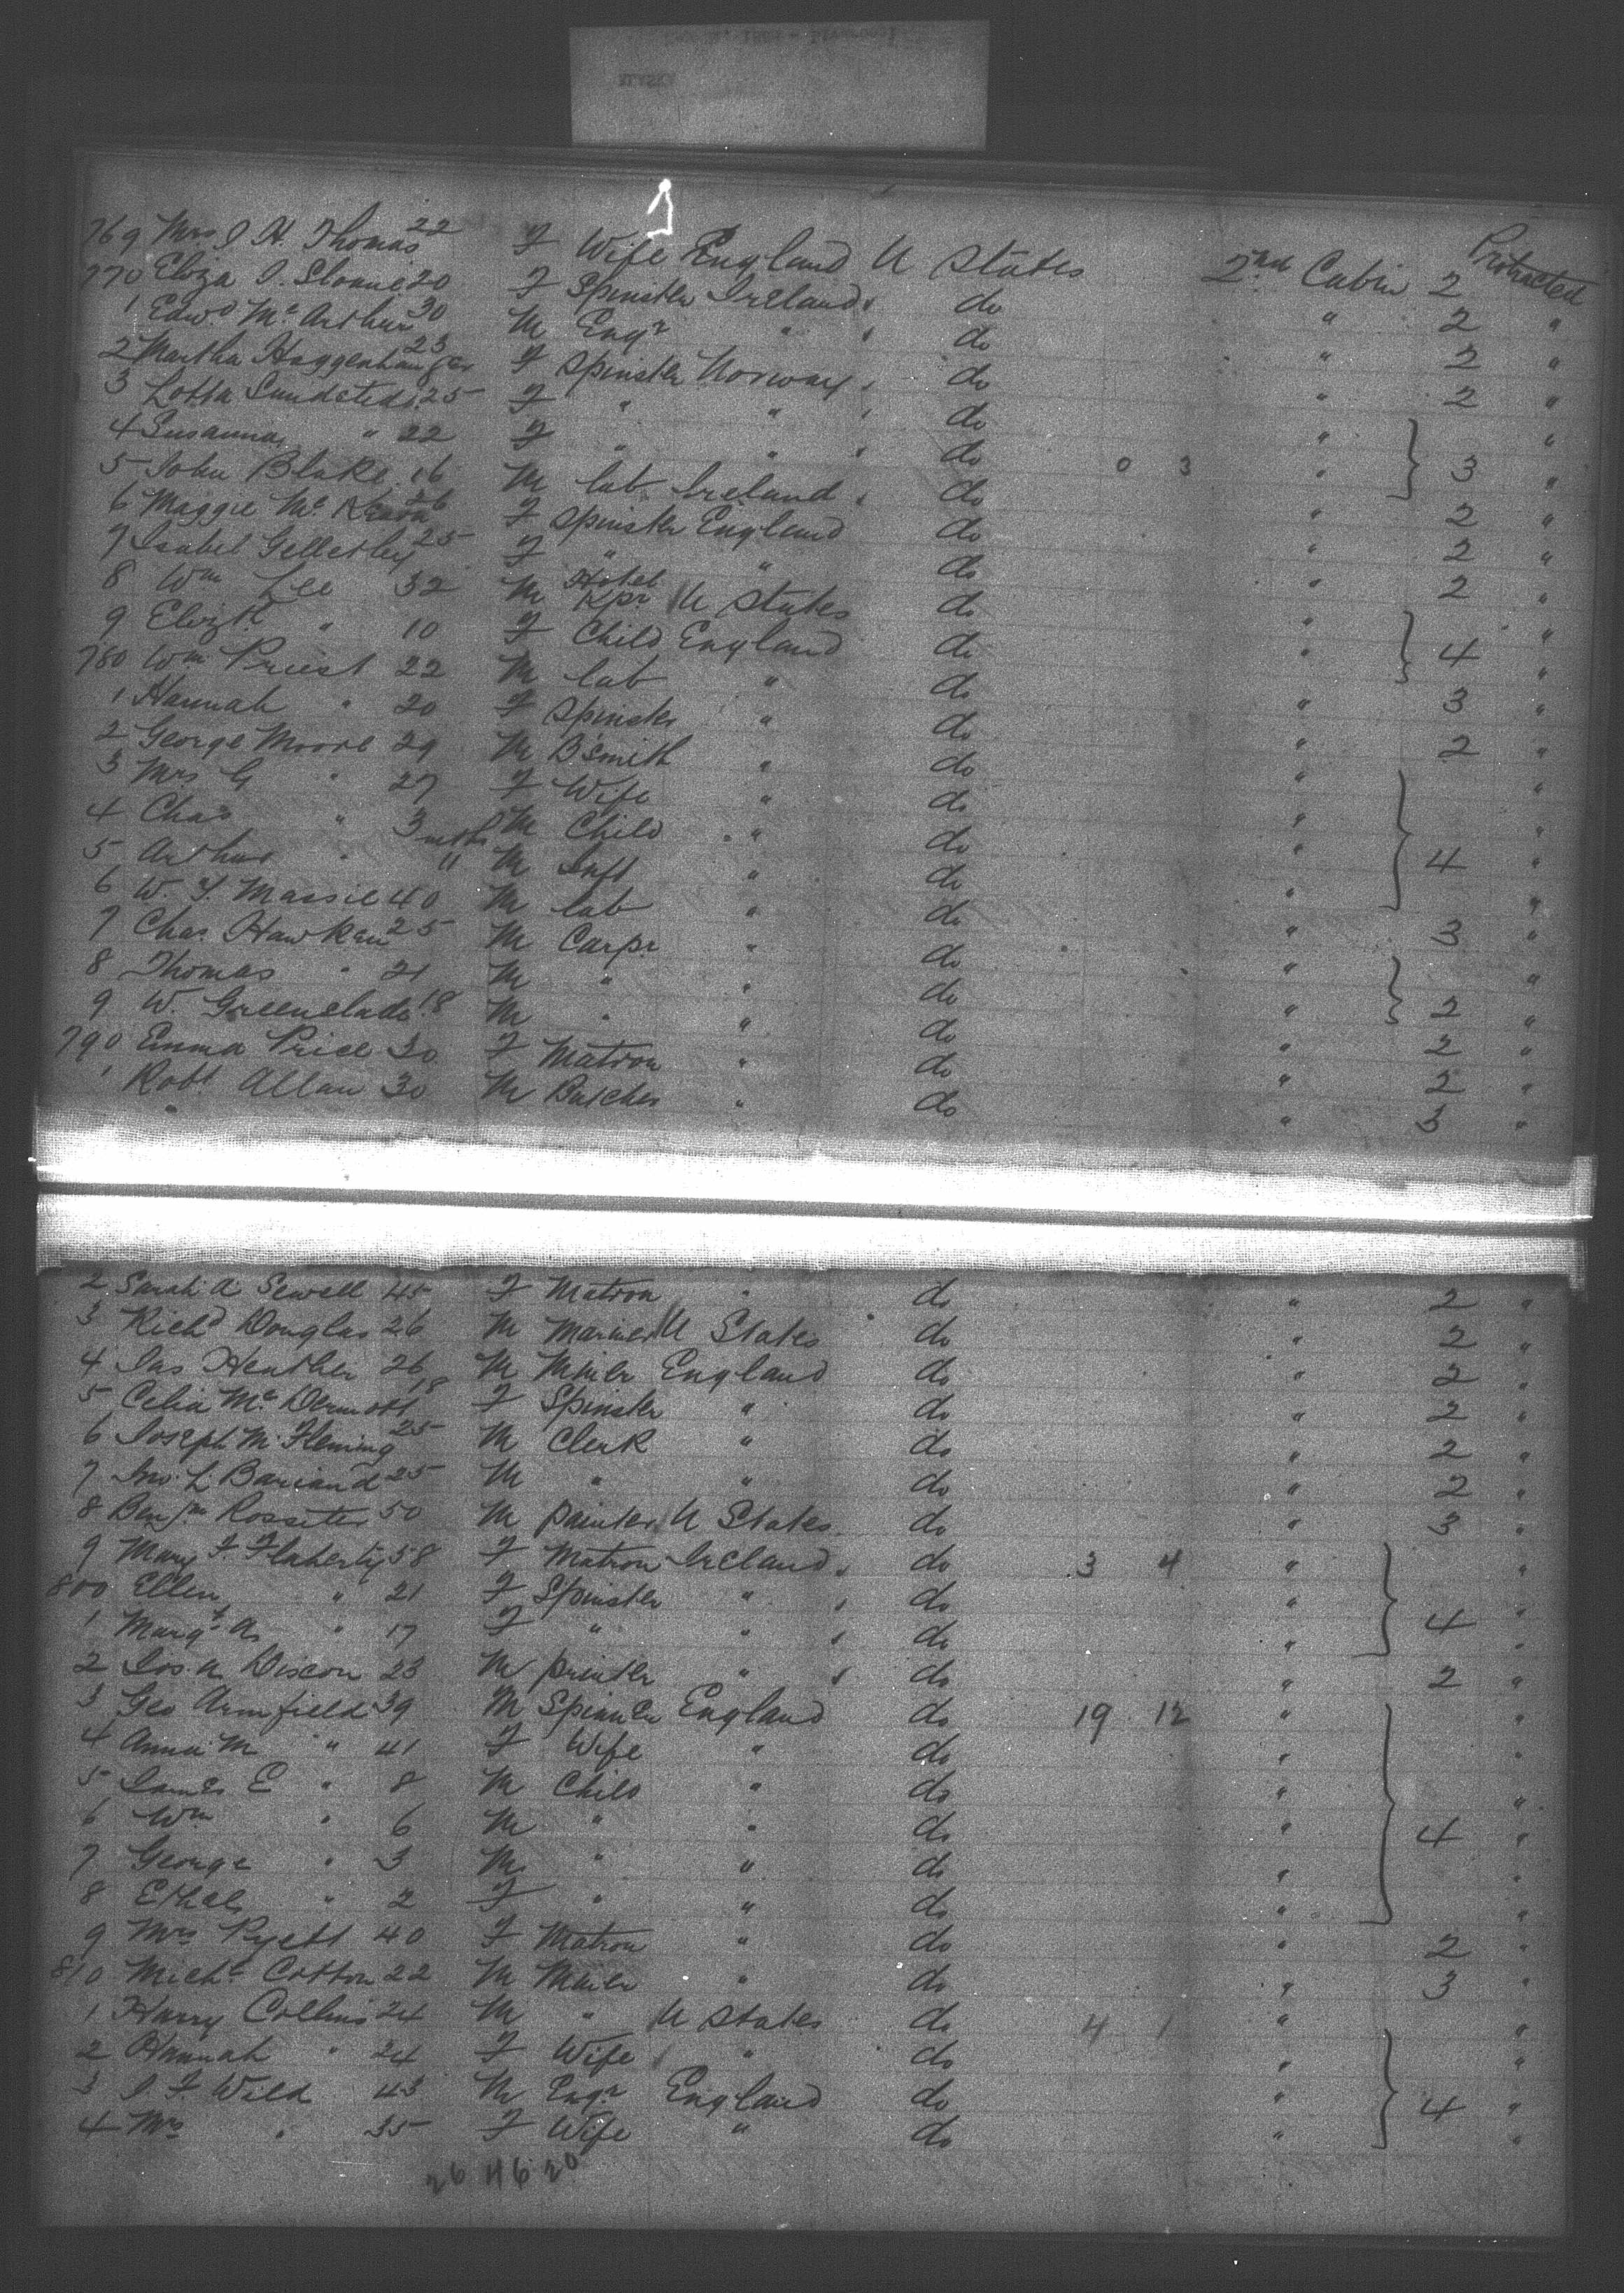 ALASKA
769 Mrs J H. Thomas 22 F Wife England U States 2nd Cabin 2 Protracted
770 Eliza J. Sloane 20 F Spinster Ireland do " 2 "
1 Edwd McArthur 30 M Engr " do " 2 "
2 Martha 23 F Spinster Norway do " 2 "
3 Lotta 25 F " " do " "
4 Susanna " 22 F " " do 0 3 " 3 "
5 John Blake 16 M lab Ireland do " 2 "
6 Maggie Mc 26 F Spinster England do " 2 "
7 Isabel Gellerley 25 F " " do " 2 "
8 Wm Lee 32 M Hotel Kpr U States do " "
9 Elizth " 10 F Child England do " 4 "
780 Wm Priest 22 M lab " do " 3 "
1 Hannah " 20 F Spinster " do " 2 "
2 George Moore 29 M B.Smith " do " "
3 Mrs G " 27 F Wife " do " "
4 Chas " 3 mths M Child " do " 4 "
5 Arthur " 11 M Inft " do " "
6 W. Y. Massie 40 M lab " do " 3 "
7 Chas. Hawken 25 M Carpr " do " "
8 Thomas " 21 M " " do " 2 "
9 W. Greenslade 18 M " " do " 2 "
790 Emma Price 30 F Matron " do " 2 "
1 Robt Allan 30 M Butcher " do " 3 "
2 Sarah A Sewell 45 F Matron " do " 2 "
3 Richd Douglas 26 M Mariner U States do " 2 "
4 Jas Heather 26 M Miner England do " 2 "
5 Celia McDermott 18 F Spinster " do " 2 "
6 Joseph M. Fleming 25 M Clerk " do " 2 "
7 Jno. L. 25 M " " do " 2 "
8 Benjm Rosseter 50 M Painter U States do " 3 "
9 Mary F. Flaherty 58 F Matron Ireland do 3 4 " "
800 Ellen " 21 F Spinster " do " "
1 Margt A " 17 F " " do " 4 "
2 Jos. A 23 M printer " do " 2 "
3 Geo Armfield 39 M Spinner England do 19 12 " "
4 Anna M " 41 F Wife " do " "
5 James E " 8 M Child " do " "
6 Wm " 6 M " " do " 4 "
7 George " 3 M " " do " "
8 Ethel " 2 F " " do " "
9 Mrs Pyett 40 F Matron " do " 2 "
810 Michl Cotton 22 M Miner " do " 3 "
1 Harry Collins 24 M " U States do 4 1 " "
2 Hannah " 24 F Wife " do " "
3 J. F. Wild 43 M Engr England do " 4 "
4 Mrs " 35 F Wife " do " "
26 46 20